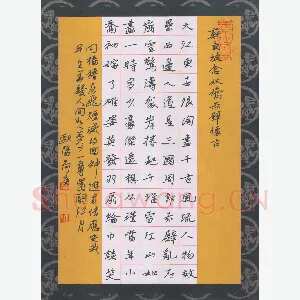 蘇東坡念奴嬌赤壁懷古
大江東去浪淘盡千古風流人物故
壘西邊人道是三國周郎赤壁亂石
崩雲驚濤裂岸捲起千堆雪江山如
畫一時多少豪傑遙想公瑾當年小
喬初嫁了雄姿英發羽扇綸巾談笑
間檣櫓灰飛煙滅故國神遊多情應笑我
早生華髮人間如夢一尊還酹江月